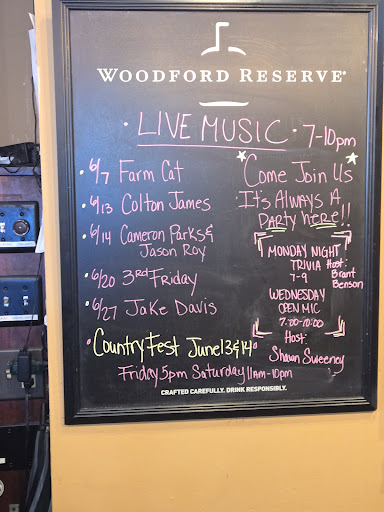 WOODFORD RESERVE®
· LIVE MUSIC · 7-10pm
• 6/7 Farm Cat
• 6/13 Colton James
• 6/14 Cameron Parks &
Jason Roy
• 6/20 3rd Friday
• 6/27 Jake Davis
• Country Fest June 13 & 14 •
Friday 5pm Saturday 11AM-10pm
Come Join Us
It's Always A
PARTY here!!
MONDAY NIGHT
TRIVIA Host:
7-9 Brant
Benson
WEDNESDAY
OPEN MIC
7:00-10:00
Host:
Shaun Sweeney
CRAFTED CAREFULLY. DRINK RESPONSIBLY.